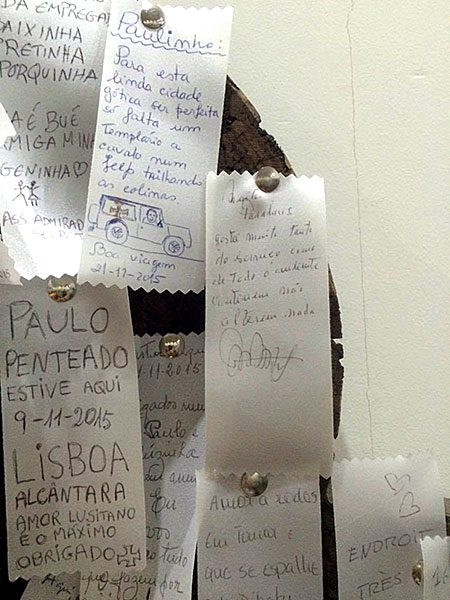 DA EMPREGA
AIXINHA
PRETINHA
PORQUINHA
A É BUÉ
MIGA MIN
GENINHA♡
ASS ADMIRAD
Paulinho:
Para esta
linda cidade
gótica ser perfeita
só falta um
Templário a
cavalo num
Jeep trilhando
as colinas.
Boa viagem
21-11-2015
gosta muito tanto
do serviço como
de todo o ambiente
continuem não
alterem nada
PAULO
PENTEADO
ESTIVE AQUI
9-11-2015
LISBOA
ALCÂNTARA
AMOR LUSITANO
É O MÁXIMO
OBRIGADO
-11-2015
Paulo e
Eu
tudo
por
Amor a todos
em Tomar e
que se espalhe
ENDROIT
TRÈS